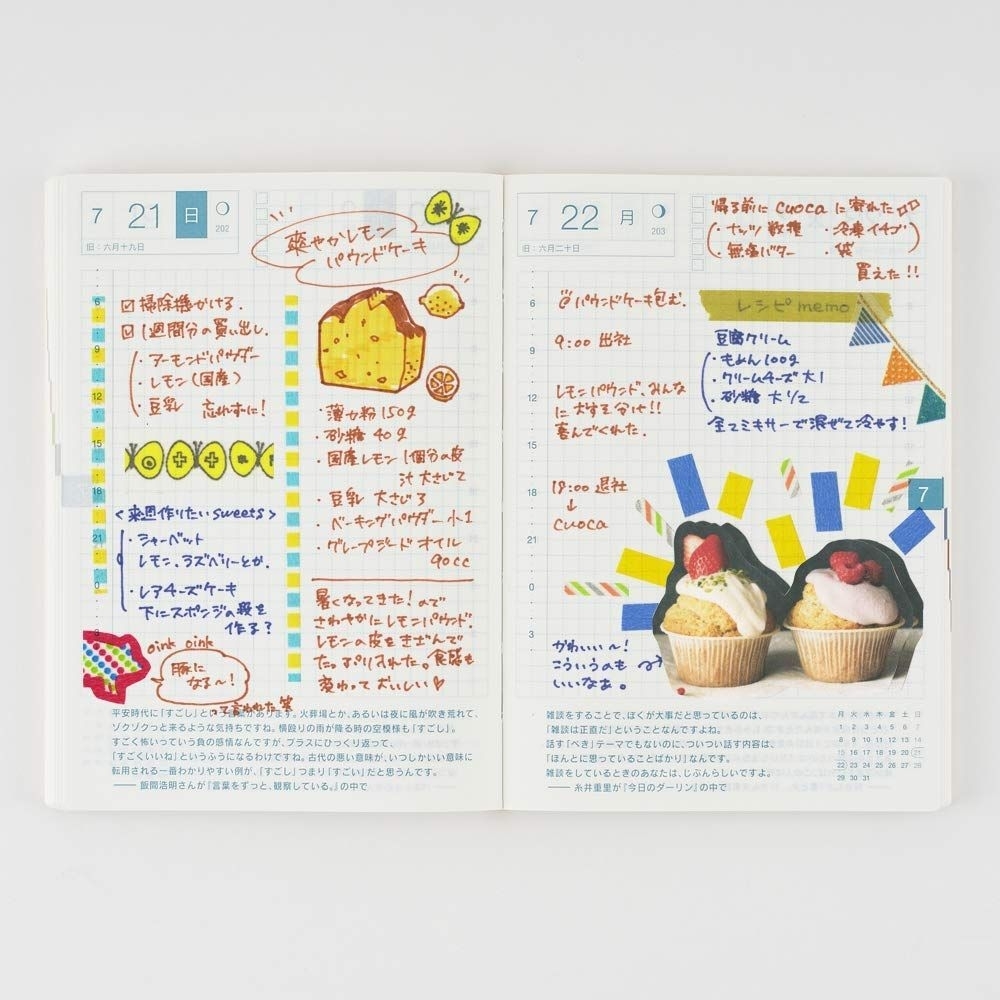 7 21 日 202
旧：六月十九日
爽やかレモン
パウンドケーキ
6
9
12
15
18
21
0
3
☑ 掃除機かける.
☑ 1週間分の買い出し.
・アーモンドパウダー
・レモン（国産）
・豆乳 忘れずに!
＜来週作りたいsweets＞
・シャーベット
レモン、ラズベリーとか.
・レアチーズケーキ
下にスポンジの段を
作る?
oink oink
豚に
なる〜!
って言われた 笑
・薄力粉 150g
・砂糖 40g
・国産レモン 1個分の皮
汁 大さじ2
・豆乳 大さじ3
・ベーキングパウダー 小1
・グレープシードオイル
90cc
暑くなってきた!ので
さわやかにレモンパウンド.
レモンの皮をきざんで
たっぷり入れた。食感も
変わっておいしい♡
平安時代に「すごし」という言葉があります。火葬場とか、あるいは夜に風が吹き荒れて、
ゾクゾクっと来るような気持ちですね。横殴りの雨が降る時の空模様も「すごし」。
すごく怖いっていう負の感情なんですが、プラスにひっくり返って、
「すごくいいね」というふうになるわけですね。古代の悪い意味が、いつしかいい意味に
転用される一番わかりやすい例が、「すごし」つまり「すごい」だと思うんです。
—— 飯間浩明さんが『言葉をずっと、観察している。』の中で
7 22 月 203
旧：六月二十日
帰る前に cuoca に寄れた
・ナッツ数種 ・冷凍イチゴ
・無塩バター ・袋
買えた!!
6
9
12
15
18
21
0
3
@パウンドケーキ包む.
9:00 出社
レモンパウンド、みんな
に大すそ分け!!
喜んでくれた.
18:00 退社
↓
cuoca
レシピ memo
豆腐クリーム
・もめん 100g
・クリームチーズ 大1
・砂糖 大1/2
全てミキサーで混ぜて冷やす!
7
かわいい〜!
こういうのも
いいなぁ。
雑談をすることで、ぼくが大事だと思っているのは、
「雑談は正直だ」ということなんですよ。
話す「べき」テーマでもないのに、ついつい話す内容は、
「ほんとに思っていることばかり」なんです。
雑談をしているときのあなたは、じぶんらしいですよ。
—— 糸井重里が『今日のダーリン』の中で
月 火 水 木 金 土 日
1 2 3 4 5 6 7
8 9 10 11 12 13 14
15 16 17 18 19 20 21
22 23 24 25 26 27 28
29 30 31